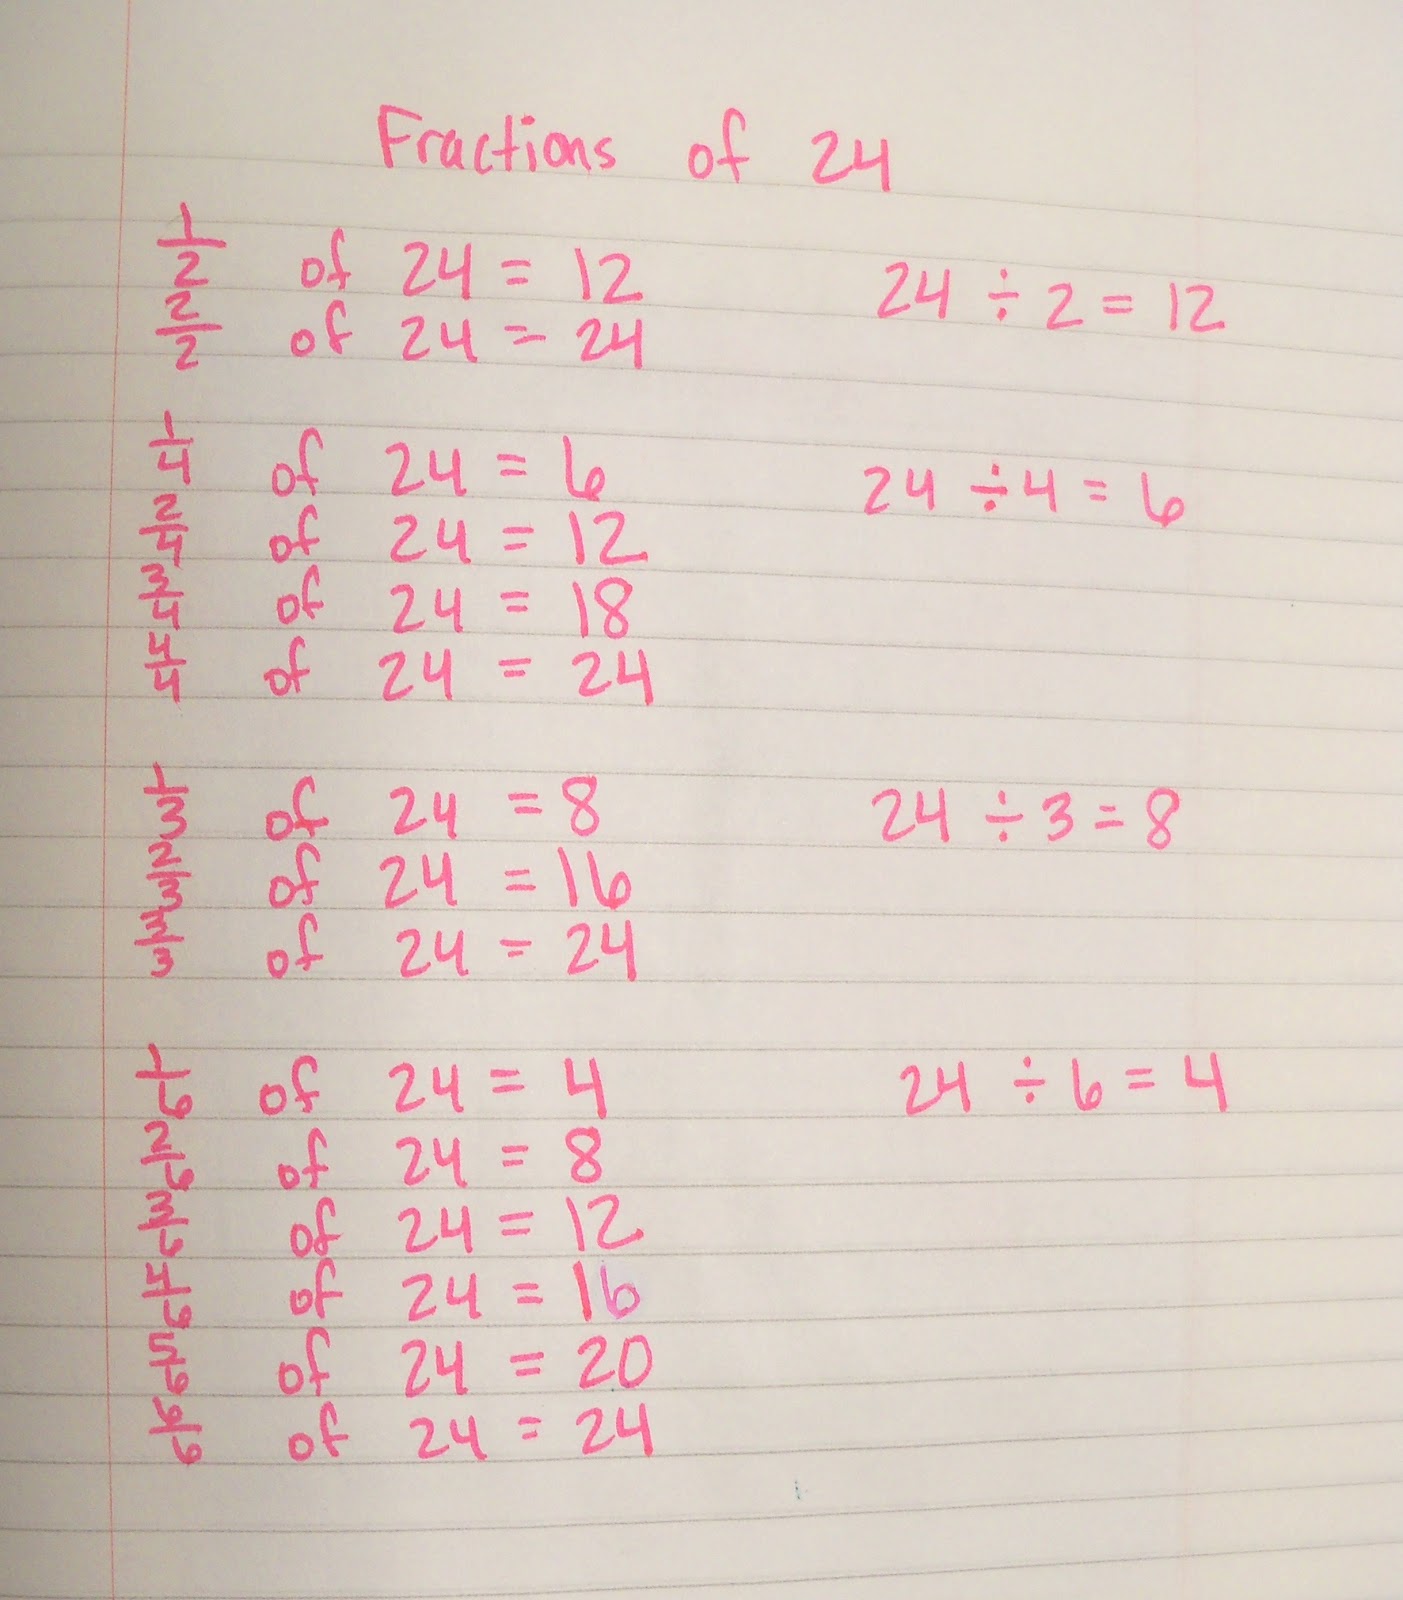 Fractions of 24
1/2 of 24 = 12 24 ÷ 2 = 12
2/2 of 24 = 24
1/4 of 24 = 6 24 ÷ 4 = 6
2/4 of 24 = 12
3/4 of 24 = 18
4/4 of 24 = 24
1/3 of 24 = 8 24 ÷ 3 = 8
2/3 of 24 = 16
3/3 of 24 = 24
1/6 of 24 = 4 24 ÷ 6 = 4
2/6 of 24 = 8
3/6 of 24 = 12
4/6 of 24 = 16
5/6 of 24 = 20
6/6 of 24 = 24